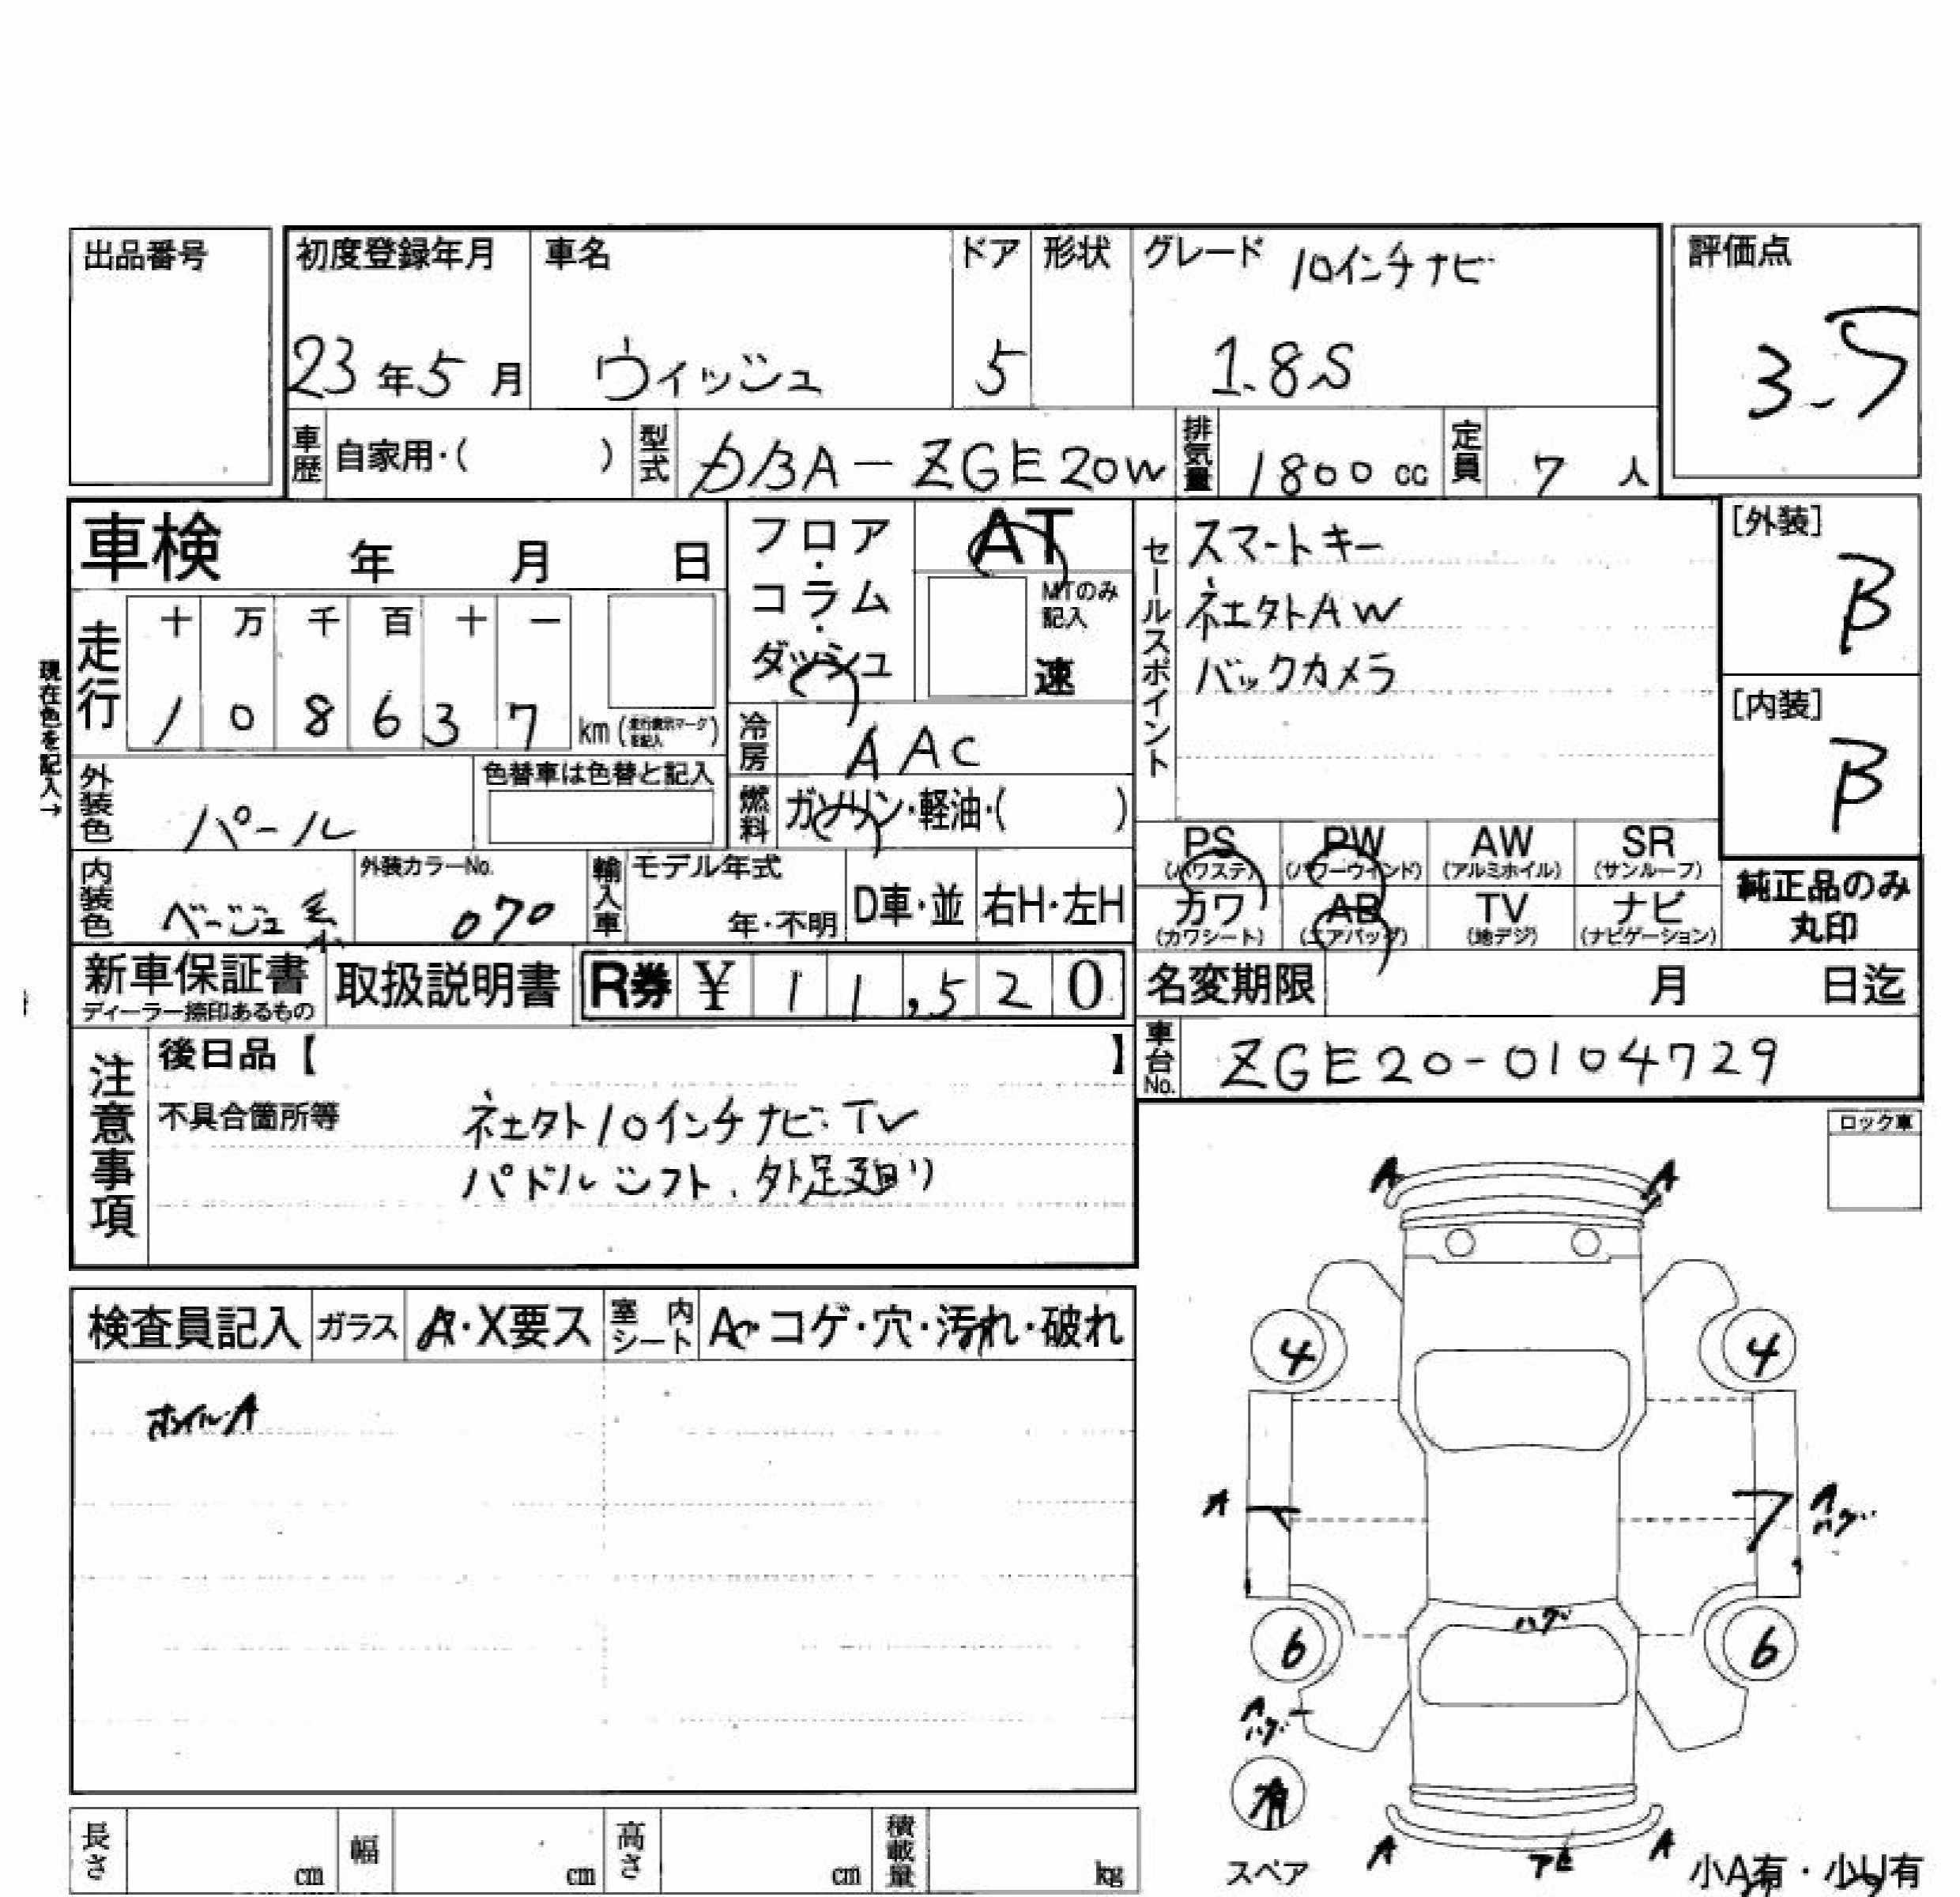 出品番号
初度登録年月 車名 ドア 形状 グレード 10インチナビ 評価点
23年5月 ウィッシュ 5 1.8S 3.5
車歴 自家用・( ) 型式 DBA-ZGE20W 排気量 1800cc 定員 7人
車検 年 月 日
フロア・コラム・ダッシュ AT
MTのみ記入
速
走行 十 万 千 百 十 一
1 0 8 6 3 7 km (走行表示マークを記入)
現在色を記入→
冷房 AAC
燃料 ガソリン・軽油・( )
外装色 パール 色替車は色替と記入
内装色 ベージュ系 外装カラーNo. 070 輸入車 モデル年式 年・不明 D車・並 右H・左H
セールスポイント
スマートキー
社外AW
バックカメラ
[外装]
B
[内装]
B
PS PW AW SR
(パワステ) (パワーウインド) (アルミホイル) (サンルーフ)
カワ AB TV ナビ
(カワシート) (エアバッグ) (地デジ) (ナビゲーション)
純正品のみ
丸印
新車保証書 取扱説明書 R券 ¥ 11,520
ディーラー捺印あるもの
名変期限 月 日迄
車台No. ZGE20-0104729
注意事項
後日品【 】
不具合箇所等 社外10インチナビ・TV
パドルシフト、外足廻り
ロック車
検査員記入 ガラス A・X要ス 室内シート A・コゲ・穴・汚れ・破れ
ホイルA
A A
A
4 4
A A
ハゲ
ハゲ
6 6
A
ハゲ
有
スペア
A A
小A有・小U有
長さ cm 幅 cm 高さ cm 積載量 kg